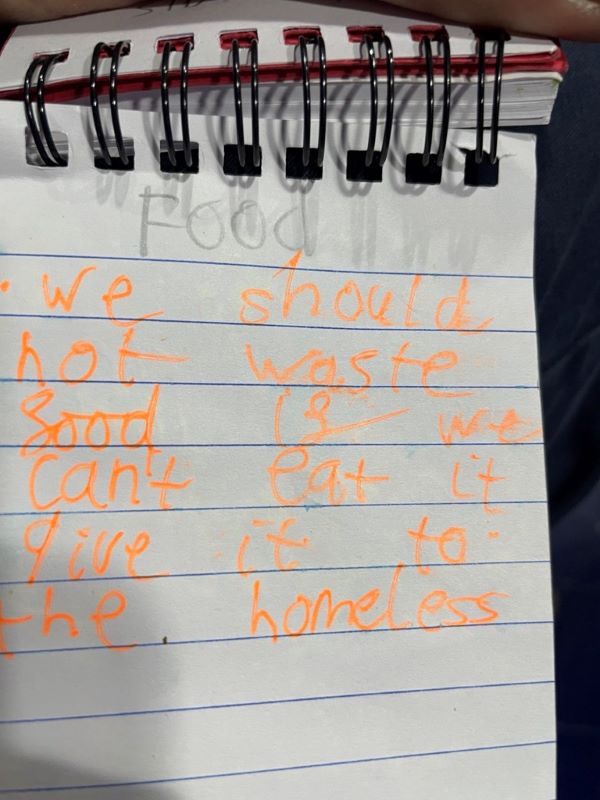 Food
· we should
not waste
food if we
can't eat it
give it to
the homeless